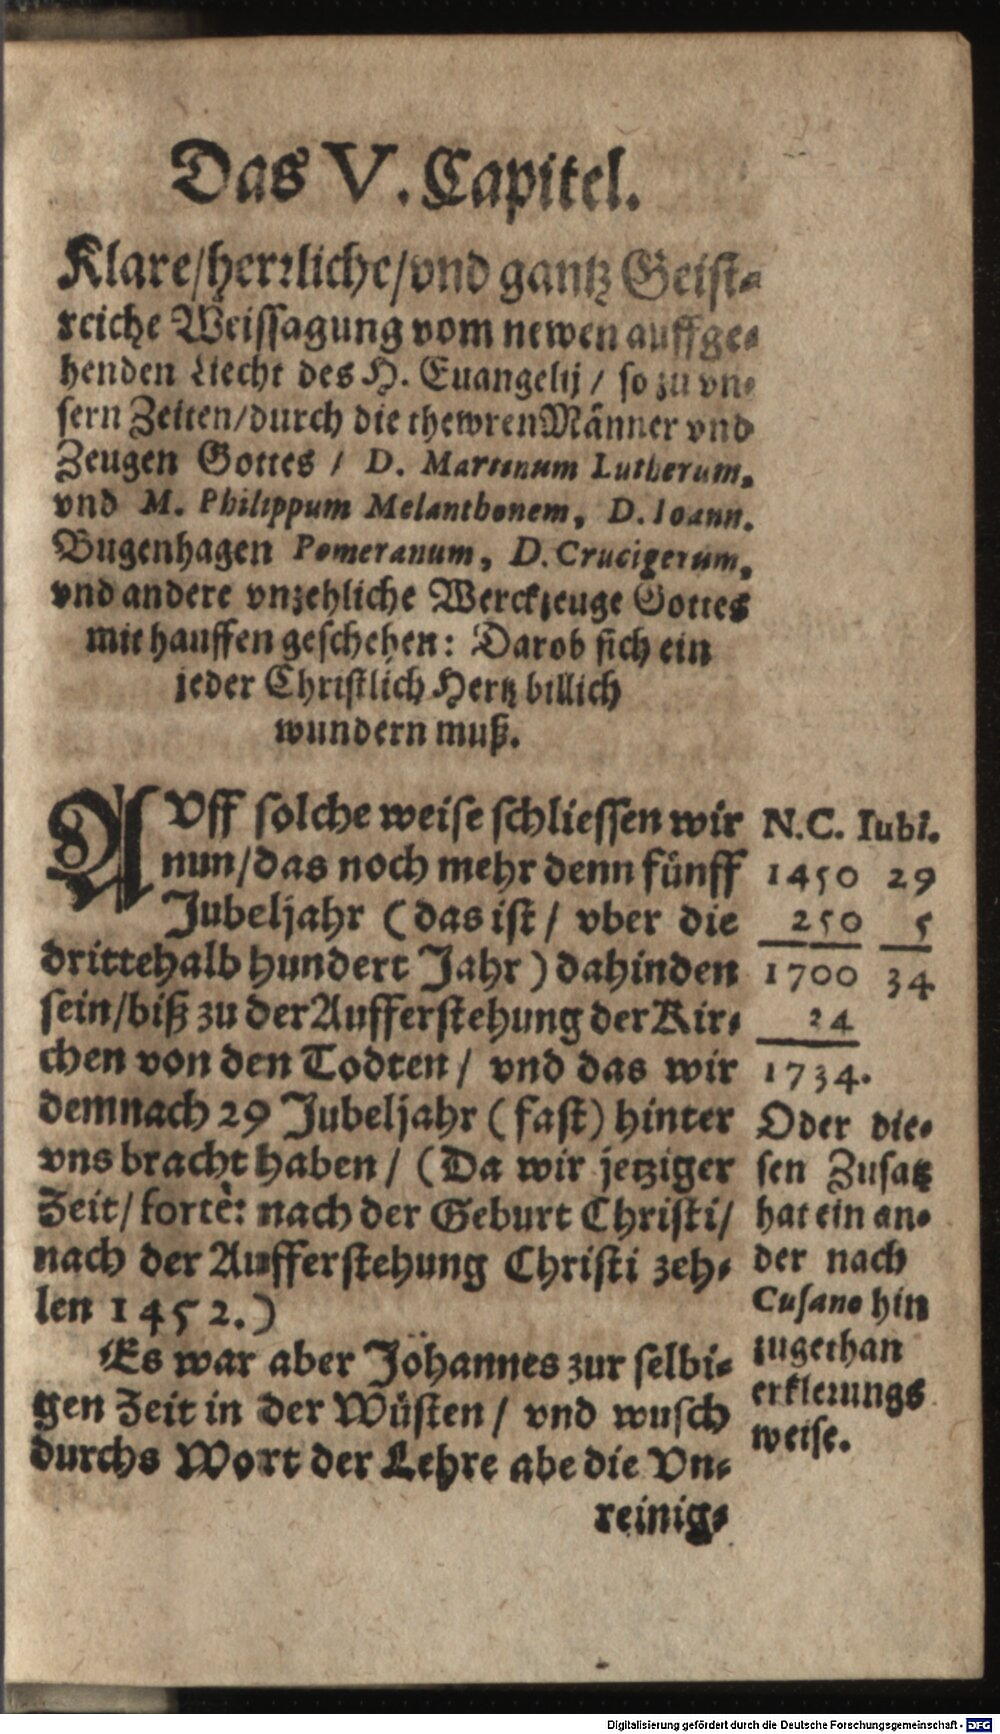 Das V. Capitel.
Klare/herꝛliche/vnd gantz Geist⸗
reiche Weissagung vom newen auffge⸗
henden Liecht des H. Euangelij / so zu vn⸗
sern Zeiten/durch die thewren Männer vnd
Zeugen Gottes / D. Martinum Lutherum,
vnd M. Philippum Melanthonem, D. Ioann.
Bugenhagen Pomeranum, D. Crucigerum,
vnd andere vnzehliche Werckzeuge Gottes
mit hauffen geschehen: Darob sich ein
jeder Christlich Hertz billich
wundern muß.
AVff solche weise schliessen wir
nun/das noch mehr denn fünff
Jubeljahr (das ist / vber die
drittehalb hundert Jahr) dahinden
sein/biß zu der Aufferstehung der Kir⸗
chen von den Todten / vnd das wir
demnach 29 Jubeljahr (fast) hinter
vns bracht haben / (Da wir jetziger
Zeit/ fortè: nach der Geburt Christi/
nach der Aufferstehung Christi zeh⸗
len 1452.)
Es war aber Johannes zur selbi⸗
gen Zeit in der Wüsten / vnd wusch
durchs Wort der Lehre abe die Vn⸗
reinig⸗
N.C. Iubi.
1450 29
250 5
1700 34
34
1734.
Oder die⸗
sen Zusatz
hat ein an⸗
der nach
Cusano hin
zugethan
erklerungs
weise.
Digitalisierung gefördert durch die Deutsche Forschungsgemeinschaft - DFG